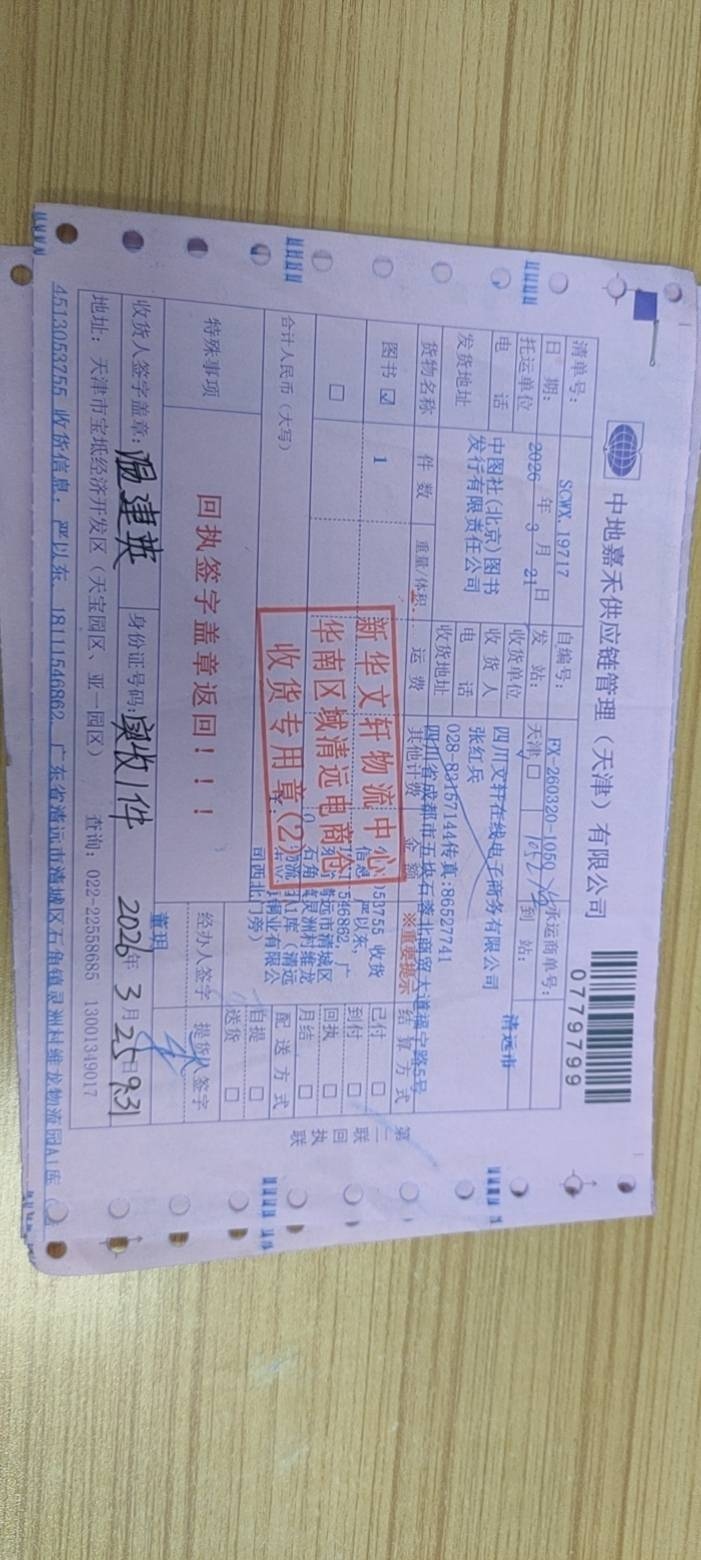 中地嘉禾供应链管理（天津）有限公司
0779799
清单号： SCWX.19717 自编号： FX-260320-1050 承运商单号：
1052
日 期： 2026 年 3 月 21 日 发 站： 天津 □ 到 站： 清远市
托运单位 中图社(北京)图书发行有限责任公司 收货单位 四川文轩在线电子商务有限公司
收 货 人 张红兵
电 话 电 话 028-83157144传真:86527741
发货地址 收货地址 四川省成都市五块石蓉北商贸大道福宁路5号
货物名称 件 数 重量/体积 运 费 其他计费 金 额 ※重要提示 结 算 方 式
图书 ☑ 1 已付 □
到付 □
□ 回执 □
月结 □
053755 收货
信息： 严以东,
546862, 广
清远市清城区
石角 灵洲村维龙
物流 A1库（清远
铜业有限公
司西北门旁）
合计人民币（大写） 配 送 方 式
自提 □
送货 □
新华文轩物流中心
华南区域清远电商仓
收货专用章(2)
特殊事项 回执签字盖章返回！！！ 经办人签字 提货人签字
董玥
收货人签字盖章: 温建英 身份证号码: 实收1件 2026年 3 月 25日 9:31
地址: 天津市宝坻经济开发区（天宝园区、亚一园区） 查询: 022-22558685 13001349017
4513053755 收货信息: 严以东, 18111546862, 广东省清远市清城区石角镇灵洲村维龙物流园A1库
第二联 回执联